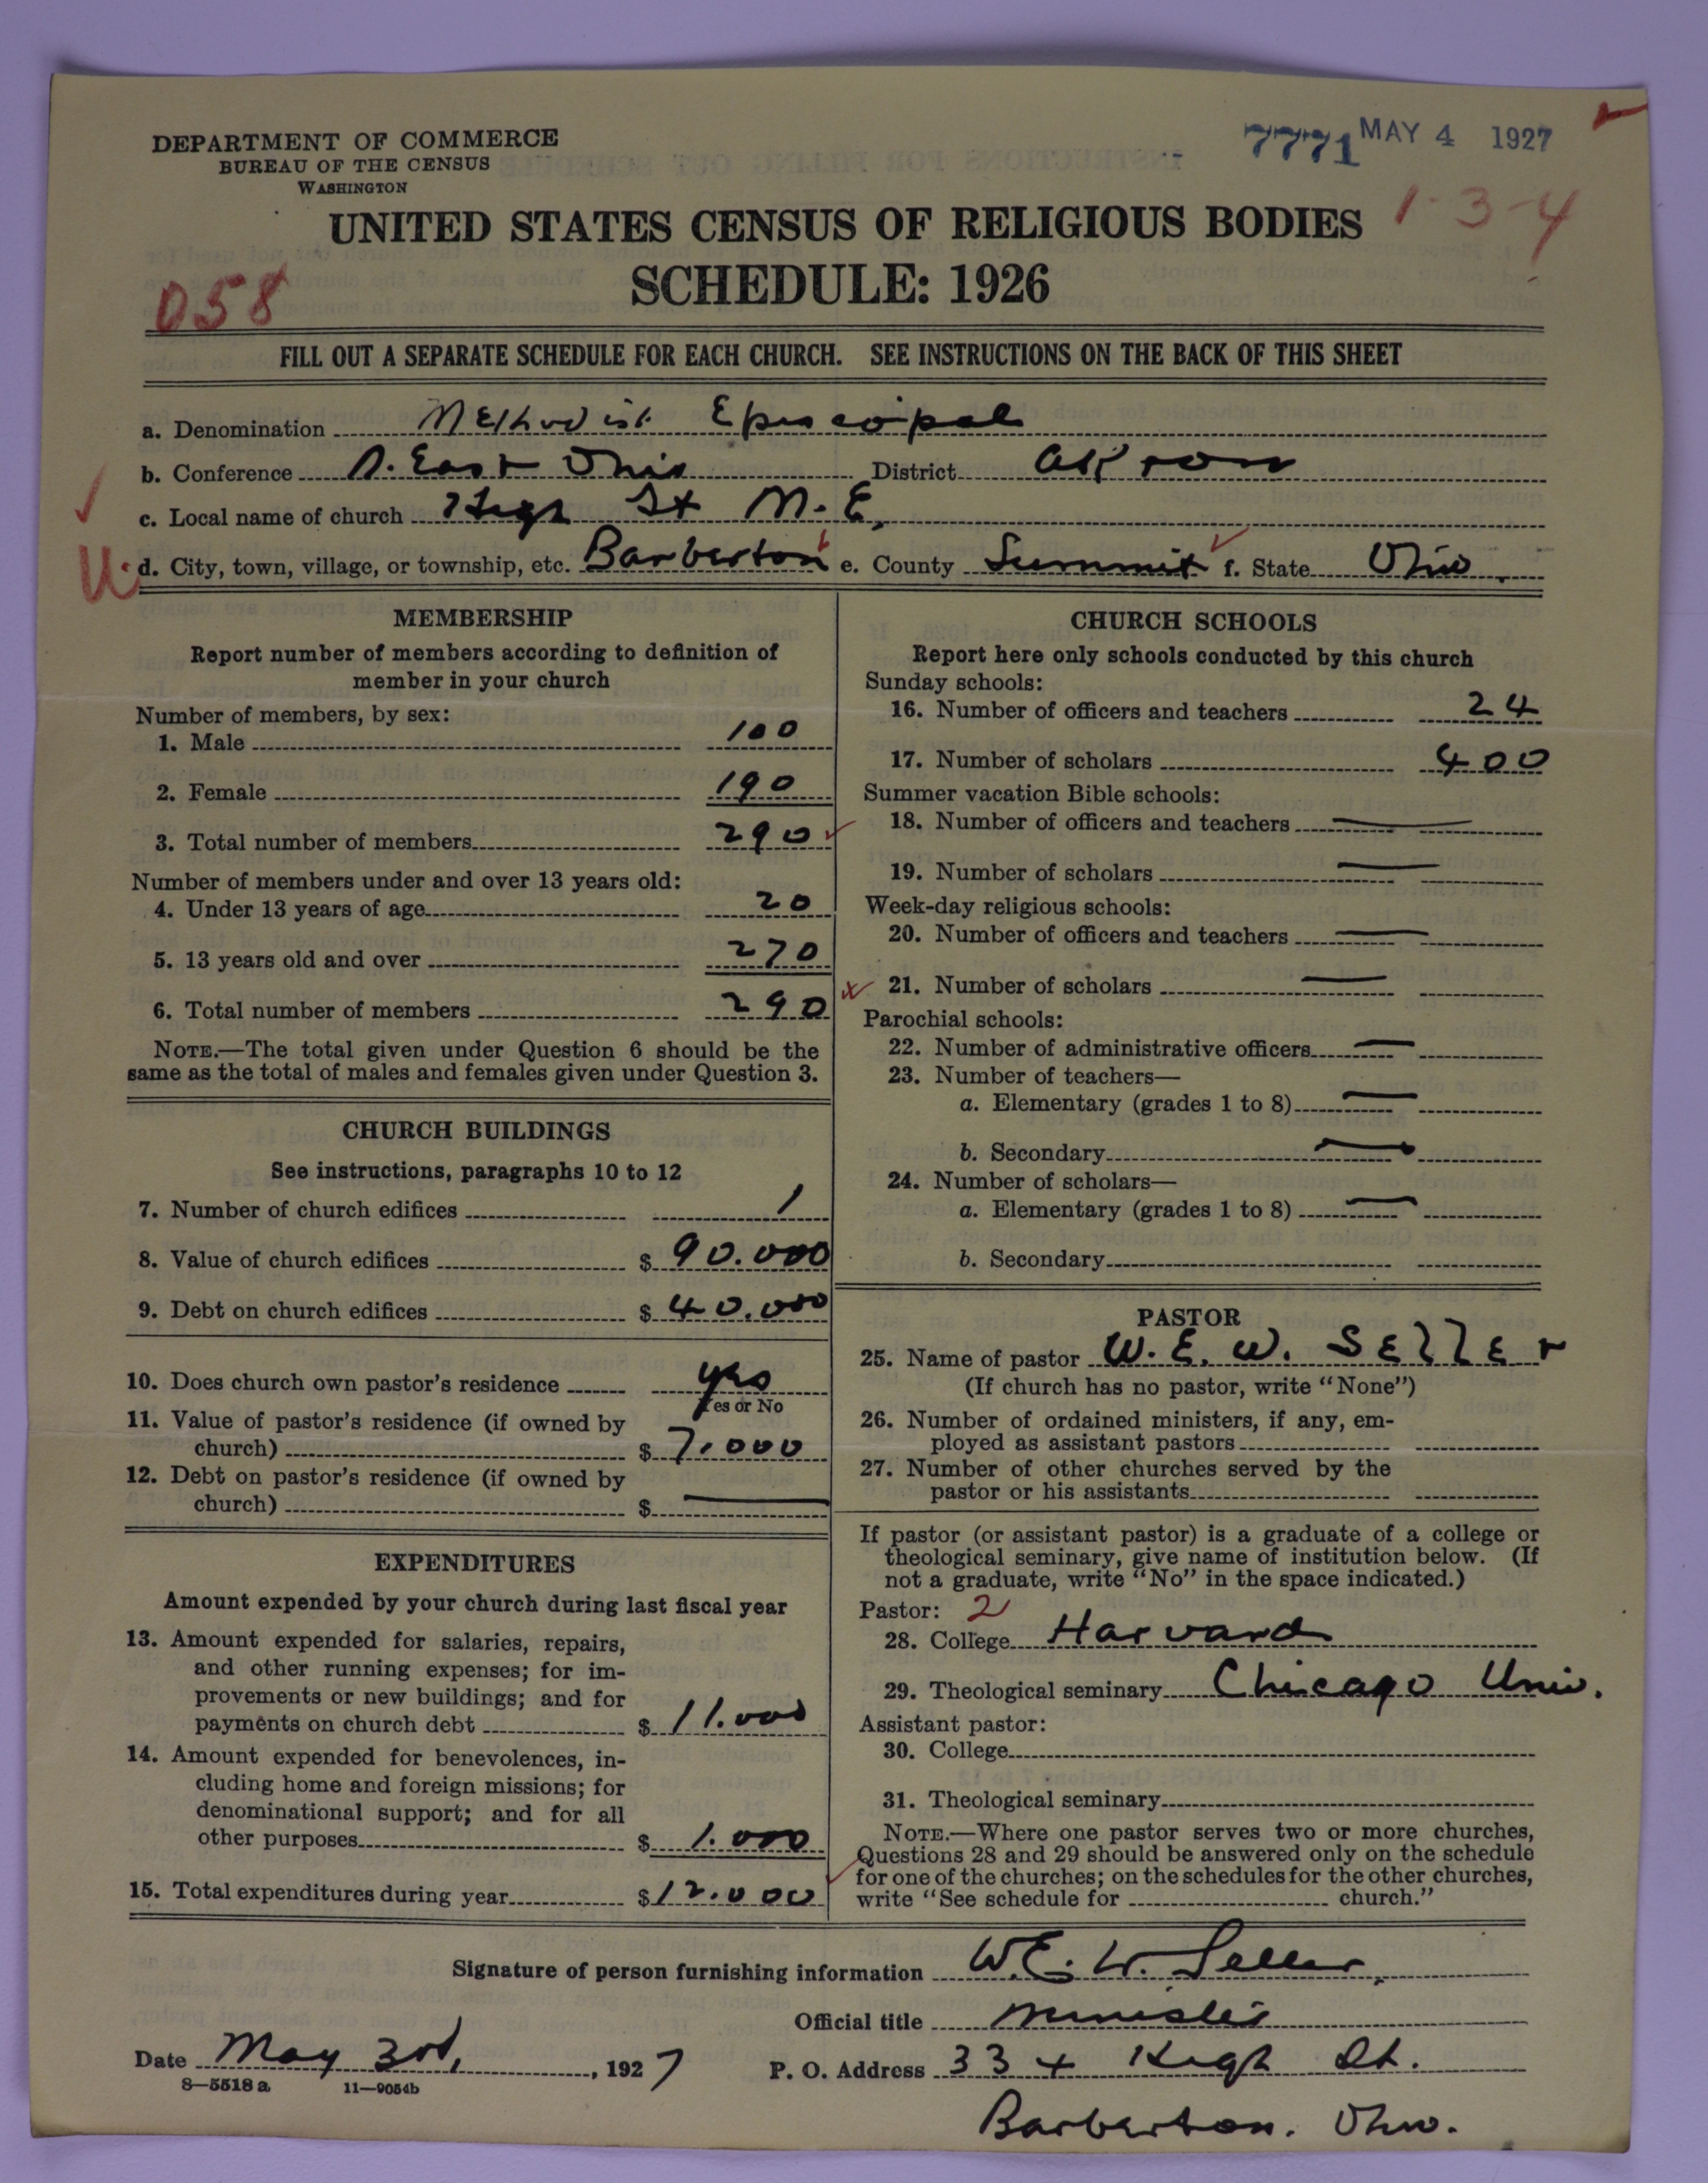 DEPARTMENT OF COMMERCE
BUREAU OF THE CENSUS
WASHINGTON
7771 MAY 4 1927
UNITED STATES CENSUS OF RELIGIOUS BODIES
1-3-4
SCHEDULE: 1926
058
FILL OUT A SEPARATE SCHEDULE FOR EACH CHURCH. SEE INSTRUCTIONS ON THE BACK OF THIS SHEET
a. Denomination Methodist Episcopal
b. Conference N. East Ohio District Akron
c. Local name of church High St M. E.
U. d. City, town, village, or township, etc. Barberton e. County Summit f. State Ohio
MEMBERSHIP
Report number of members according to definition of
member in your church
Number of members, by sex:
1. Male 100
2. Female 190
3. Total number of members 290
Number of members under and over 13 years old:
4. Under 13 years of age 20
5. 13 years old and over 270
6. Total number of members 290
NOTE.—The total given under Question 6 should be the
same as the total of males and females given under Question 3.
CHURCH BUILDINGS
See instructions, paragraphs 10 to 12
7. Number of church edifices 1
8. Value of church edifices $ 90.000
9. Debt on church edifices $ 40.000
10. Does church own pastor's residence yes
Yes or No
11. Value of pastor's residence (if owned by
church) $ 7.000
12. Debt on pastor's residence (if owned by
church) $ —
EXPENDITURES
Amount expended by your church during last fiscal year
13. Amount expended for salaries, repairs,
and other running expenses; for im-
provements or new buildings; and for
payments on church debt $ 11.000
14. Amount expended for benevolences, in-
cluding home and foreign missions; for
denominational support; and for all
other purposes $ 1.000
15. Total expenditures during year $ 12.000
CHURCH SCHOOLS
Report here only schools conducted by this church
Sunday schools:
16. Number of officers and teachers 24
17. Number of scholars 400
Summer vacation Bible schools:
18. Number of officers and teachers —
19. Number of scholars —
Week-day religious schools:
20. Number of officers and teachers —
21. Number of scholars —
Parochial schools:
22. Number of administrative officers —
23. Number of teachers—
a. Elementary (grades 1 to 8) —
b. Secondary —
24. Number of scholars—
a. Elementary (grades 1 to 8) —
b. Secondary
PASTOR
25. Name of pastor W. E. W. Seller
(If church has no pastor, write "None")
26. Number of ordained ministers, if any, em-
ployed as assistant pastors
27. Number of other churches served by the
pastor or his assistants
If pastor (or assistant pastor) is a graduate of a college or
theological seminary, give name of institution below. (If
not a graduate, write "No" in the space indicated.)
Pastor: 2
28. College Harvard
29. Theological seminary Chicago Univ.
Assistant pastor:
30. College
31. Theological seminary
NOTE.—Where one pastor serves two or more churches,
Questions 28 and 29 should be answered only on the schedule
for one of the churches; on the schedules for the other churches,
write "See schedule for church."
Signature of person furnishing information W. E. W. Seller
Official title Minister
Date May 3rd, 1927 P. O. Address 334 High St.
8—5518 a 11—9054b
Barberton. Ohio.